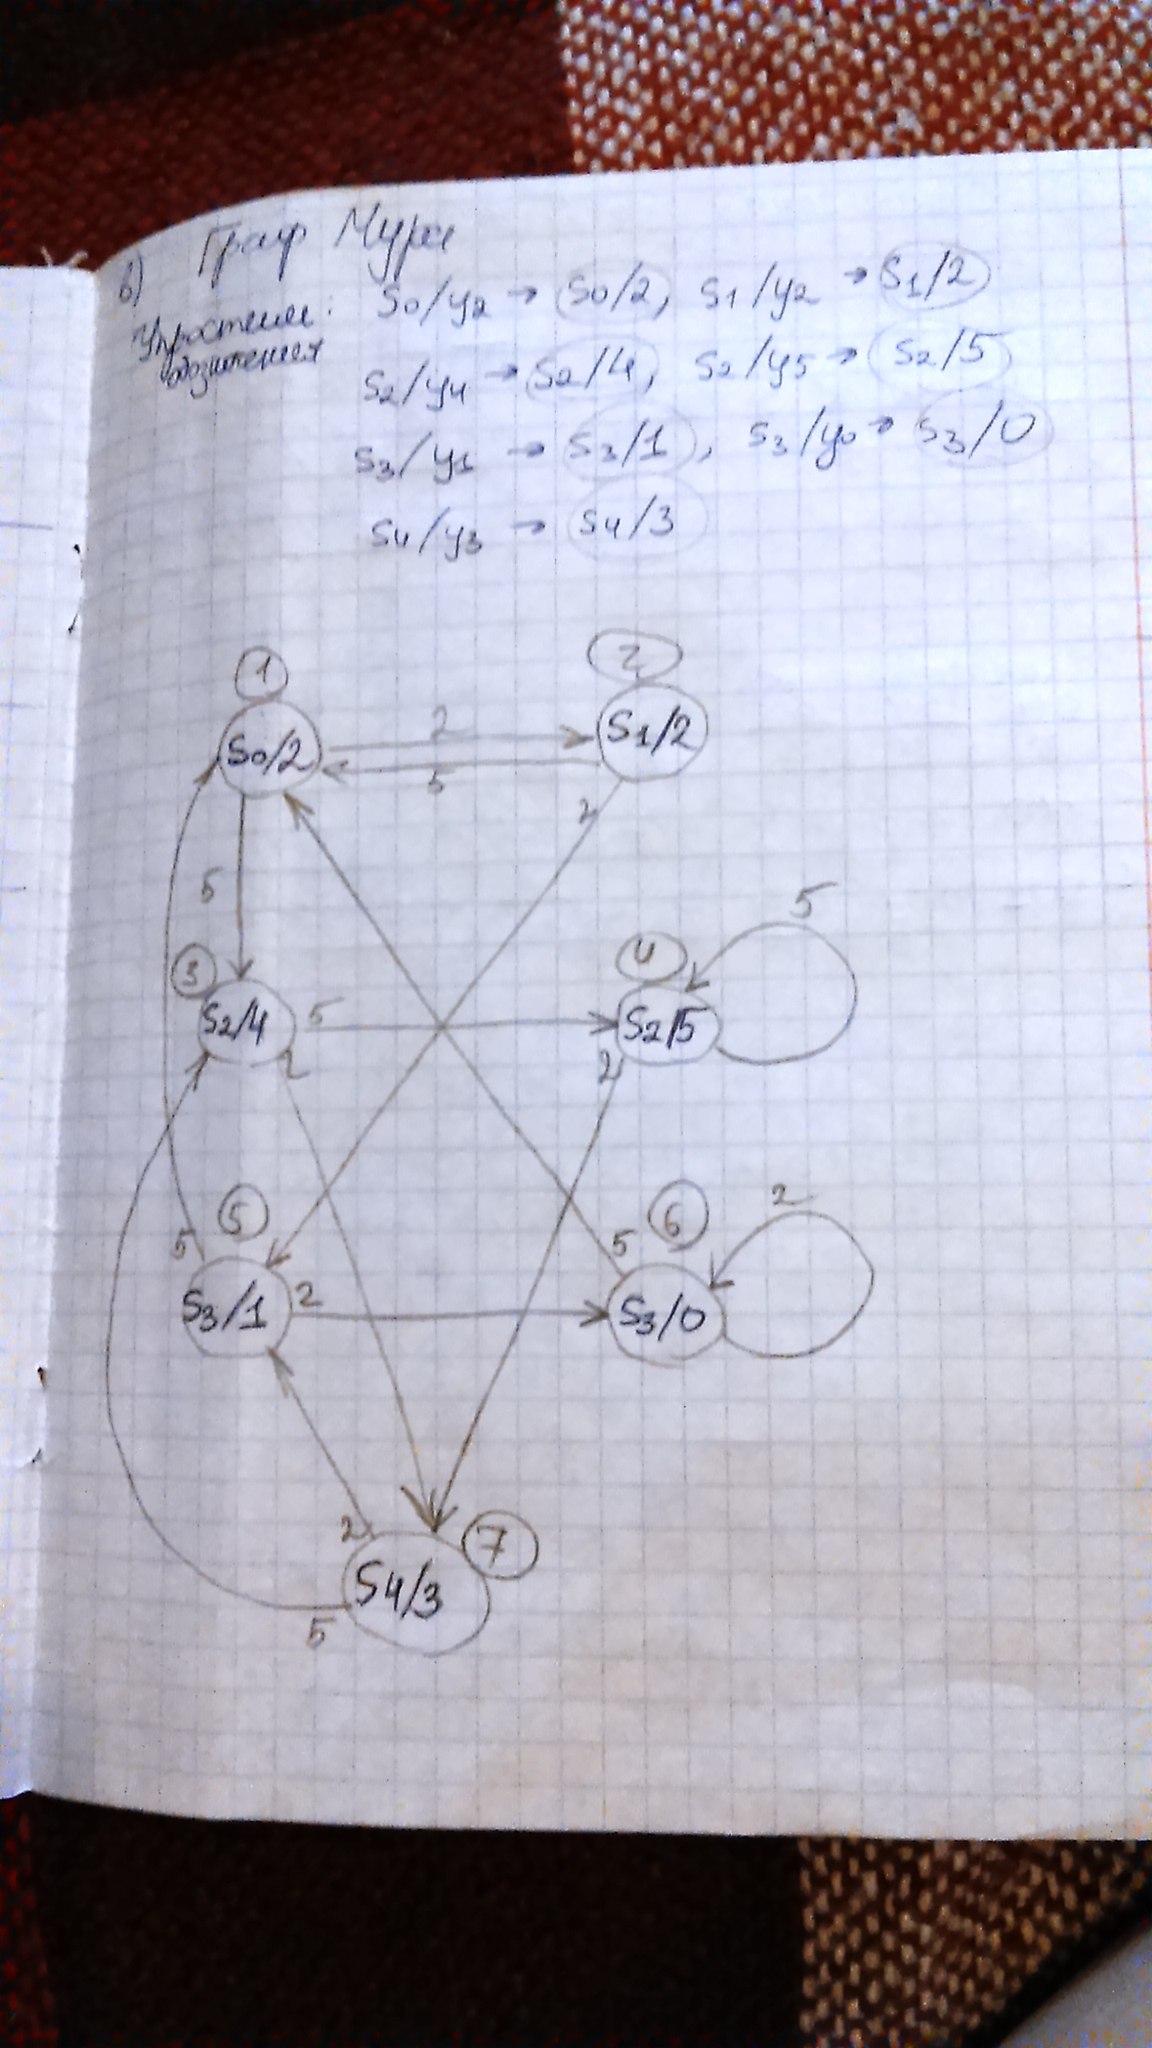 в) Граф Мура
Упростим обозначения: S0/y2 → S0/2, S1/y2 → S1/2
S2/y4 → S2/4, S2/y5 → S2/5
S3/y1 → S3/1, S3/y0 → S3/0
S4/y3 → S4/3
1
2
S0/2
2
5
S1/2
2
5
5
3
4
S2/4
5
S2/5
2
2
5
5
6
2
5
S3/1
2
S3/0
2
7
S4/3
5